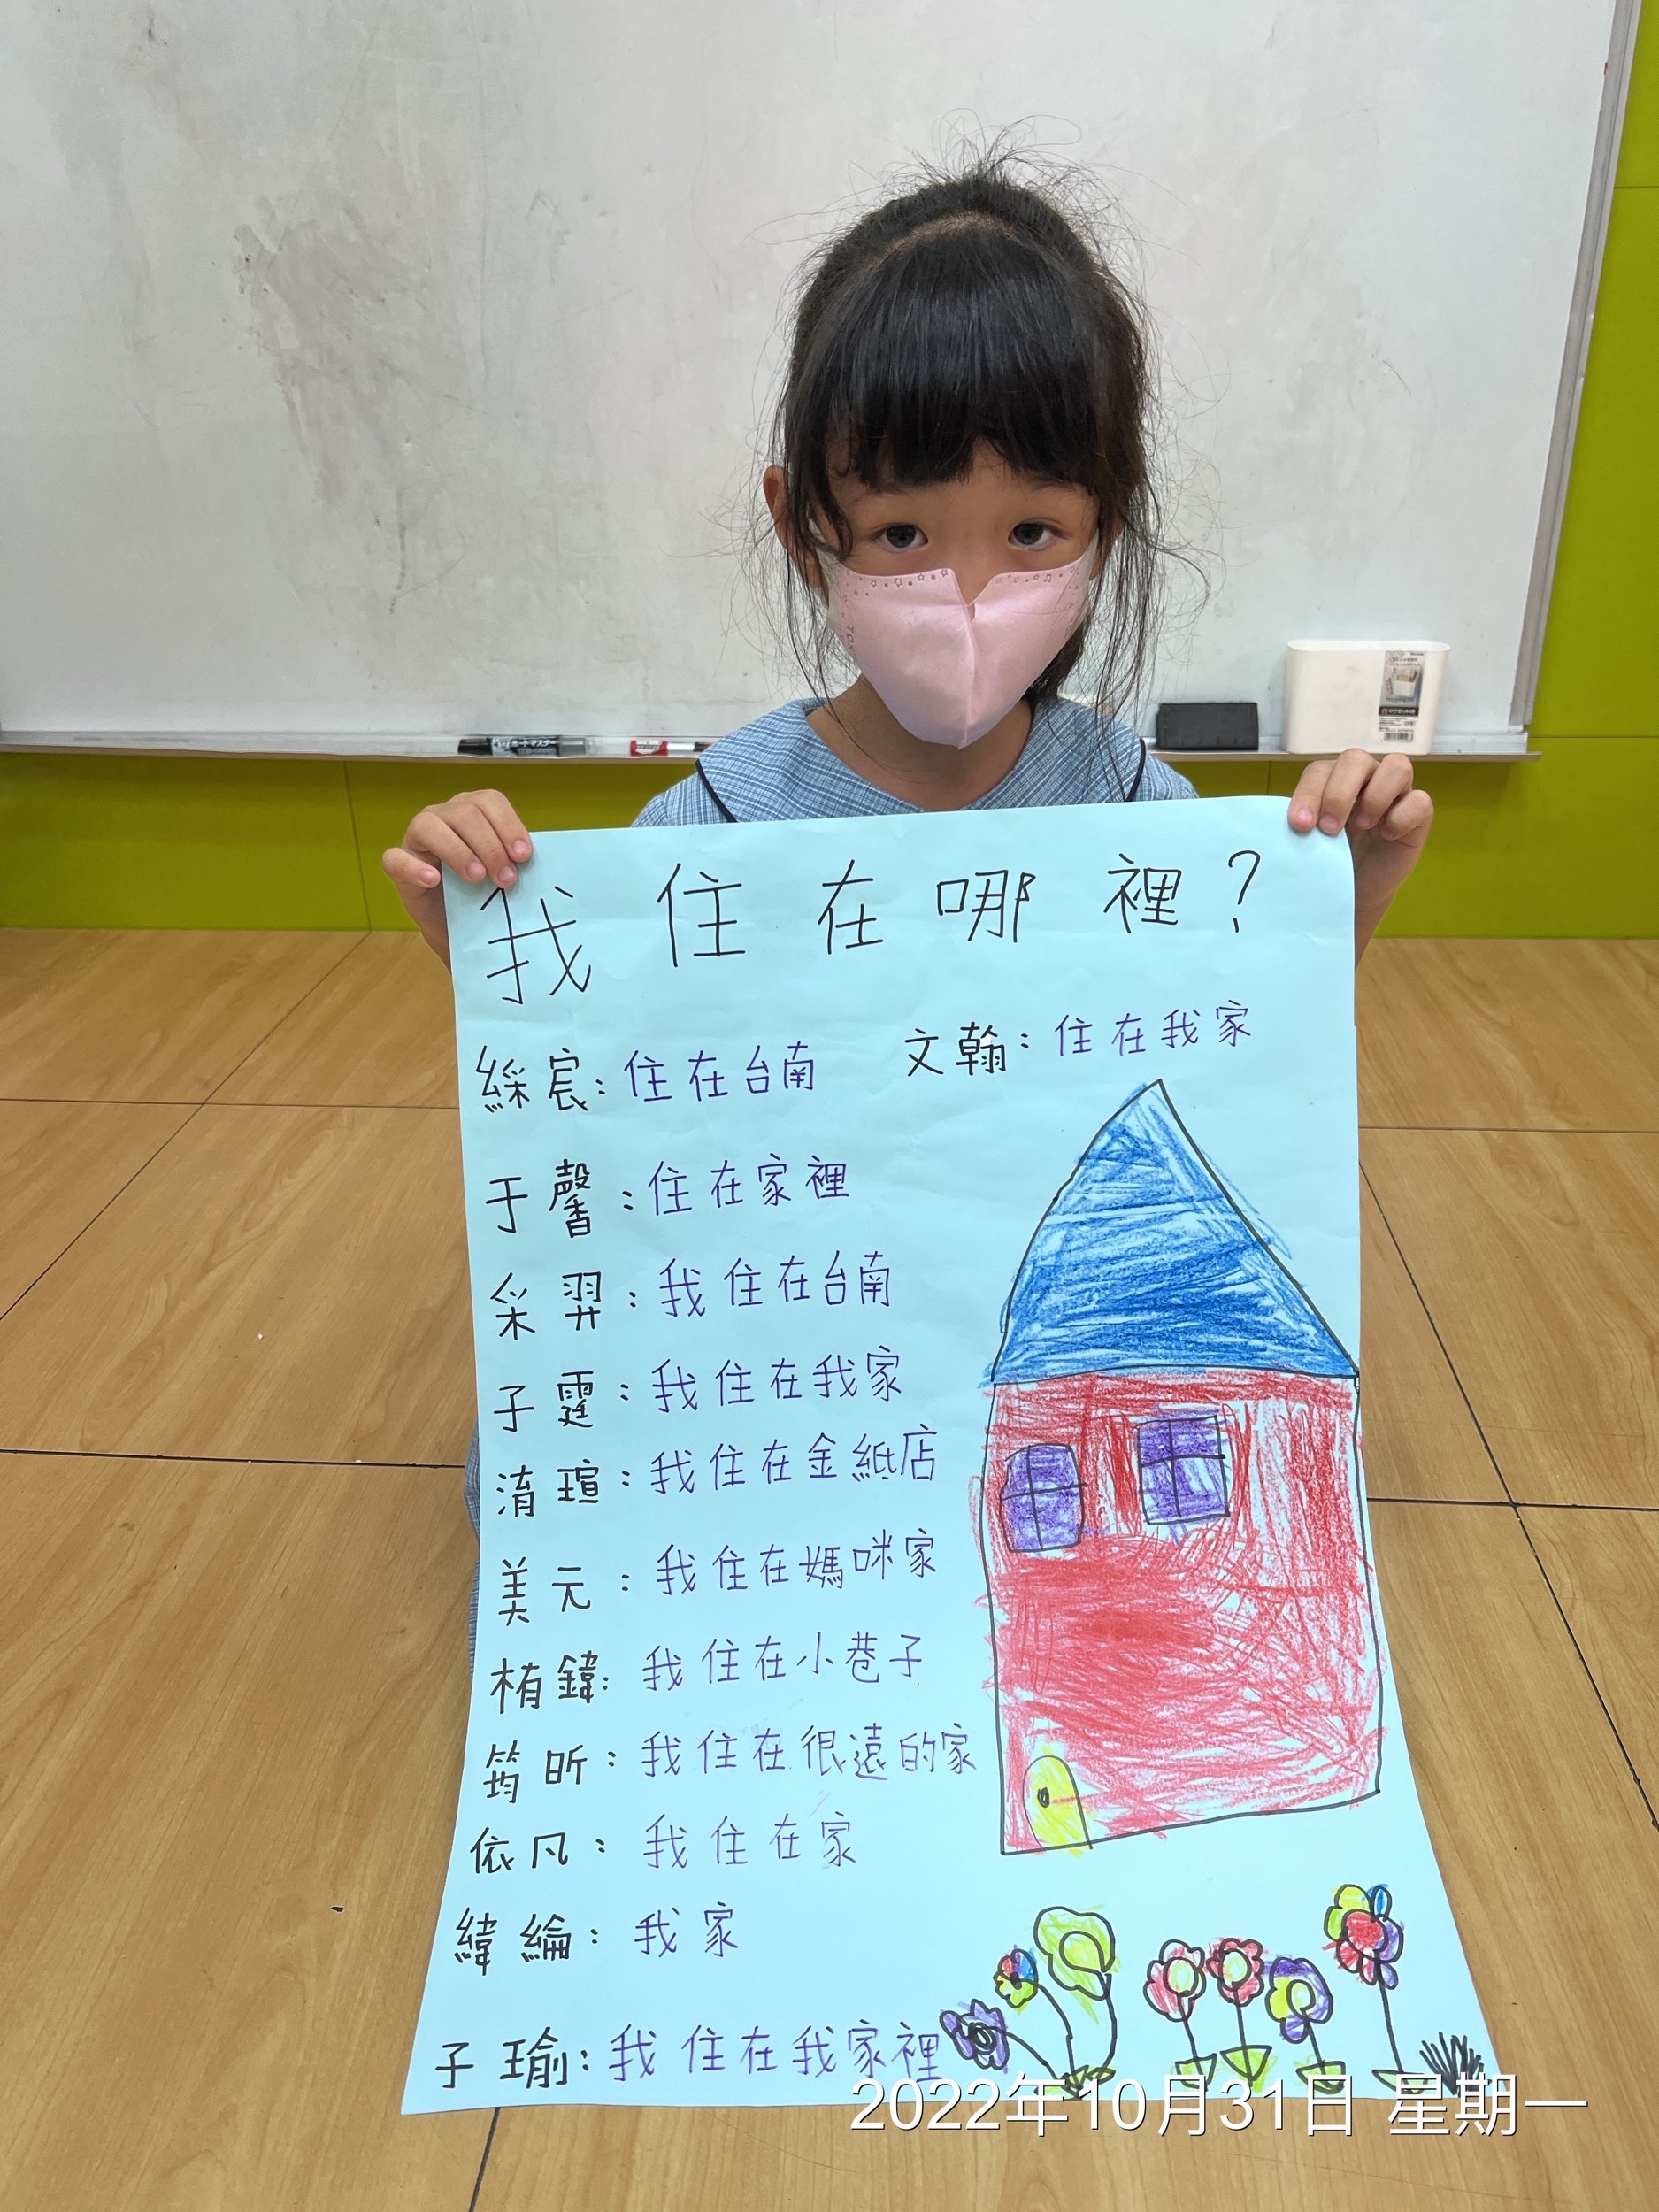 我住在哪裡?
綵宸:住在台南
文翰:住在我家
于馨:住在家裡
采羿:我住在台南
子霆:我住在我家
淯瑄:我住在金紙店
美元:我住在媽咪家
栯鍏:我住在小巷子
筠昕:我住在很遠的家
依凡:我住在家
緯綸:我家
子瑜:我住在我家裡
2022年10月31日 星期一